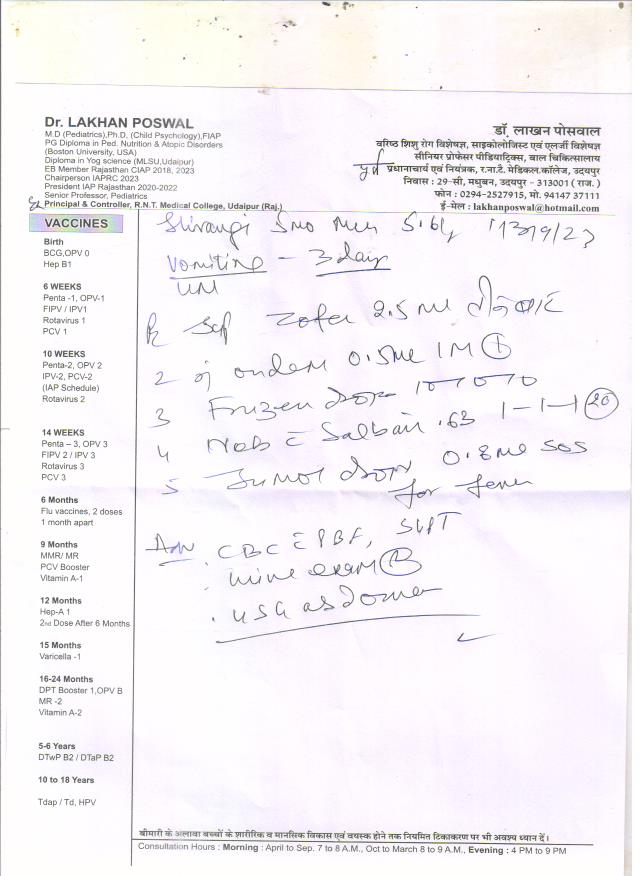 Dr. LAKHAN POSWAL
M.D (Pediatrics),Ph.D, (Child Psychology),FIAP
PG Diploma in Ped. Nutrition & Atopic Disorders
(Boston University, USA)
Diploma in Yog science (MLSU,Udaipur)
EB Member Rajasthan CIAP 2018, 2023
Chairperson IAPRC 2023
President IAP Rajasthan 2020-2022
Senior Professor, Pediatrics
Principal & Controller, R.N.T. Medical College, Udaipur (Raj.)
डॉ. लाखन पोसवाल
वरिष्ठ शिशु रोग विशेषज्ञ, साइकोलोजिस्ट एवं एलर्जी विशेषज्ञ
सीनियर प्रोफेसर पीडियाट्रिक्स, बाल चिकित्सालय
प्रधानाचार्य एवं नियंत्रक, र.ना.टै. मेडिकल.कॉलेज, उदयपुर
निवास : 29-सी, मधुबन, उदयपुर - 313001 ( राज. )
फोन : 0294-2527915, मो. 94147 37111
ई-मेल : lakhanposwal@hotmail.com
VACCINES
Birth
BCG,OPV 0
Hep B1
6 WEEKS
Penta -1, OPV-1
FIPV / IPV1
Rotavirus 1
PCV 1
10 WEEKS
Penta-2, OPV 2
IPV-2, PCV-2
(IAP Schedule)
Rotavirus 2
14 WEEKS
Penta – 3, OPV 3
FIPV 2 / IPV 3
Rotavirus 3
PCV 3
6 Months
Flu vaccines, 2 doses
1 month apart
9 Months
MMR/ MR
PCV Booster
Vitamin A-1
12 Months
Hep-A 1
2nd Dose After 6 Months
15 Months
Varicella -1
16-24 Months
DPT Booster 1,OPV B
MR -2
Vitamin A-2
5-6 Years
DTwP B2 / DTaP B2
10 to 18 Years
Tdap / Td, HPV
Shivangi
Vomiting - 3 day
Syp 2.5 ml
2 ondem 0.5ml IM
3 drop
4 Neb Salbair .63 1-1-1 20
5 drop 0.8 ml SOS
for fever
Adv CBC PBF,
. urine exam
. USG abdomen
बीमारी के अलावा बच्चों के शारीरिक व मानसिक विकास एवं वयस्क होने तक नियमित टिकाकरण पर भी अवश्य ध्यान दें।
Consultation Hours : Morning : April to Sep. 7 to 8 A.M., Oct to March 8 to 9 A.M., Evening : 4 PM to 9 PM